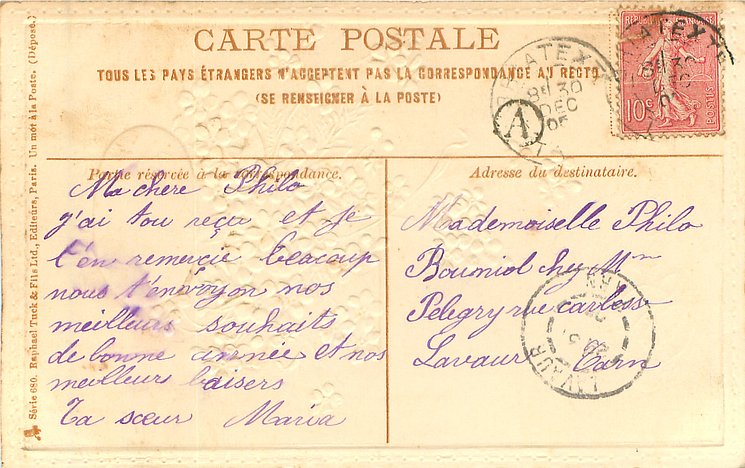 CARTE POSTALE
TOUS LES PAYS ÉTRANGERS N'ACCEPTENT PAS LA CORRESPONDANCE AU RECTO
(SE RENSEIGNER À LA POSTE)
Partie réservée à la correspondance.
Ma chère Philo
j'ai tou reçu et je
t'en remercie beacoup
nous t'envoyon nos
meilleurs souhaits
de bonne année et nos
meilleurs baisers
Ta sœur Maria
Adresse du destinataire.
Mademoiselle Philo
Bouniol chez Mm
Pelegry rue carless
Lavaur Tarn
Série 680. Raphael Tuck & Fils Ltd., Editeurs, Paris. Un mot à la Poste. (Déposé.)
30
DEC
05
A
10c
POSTES
LAVAUR